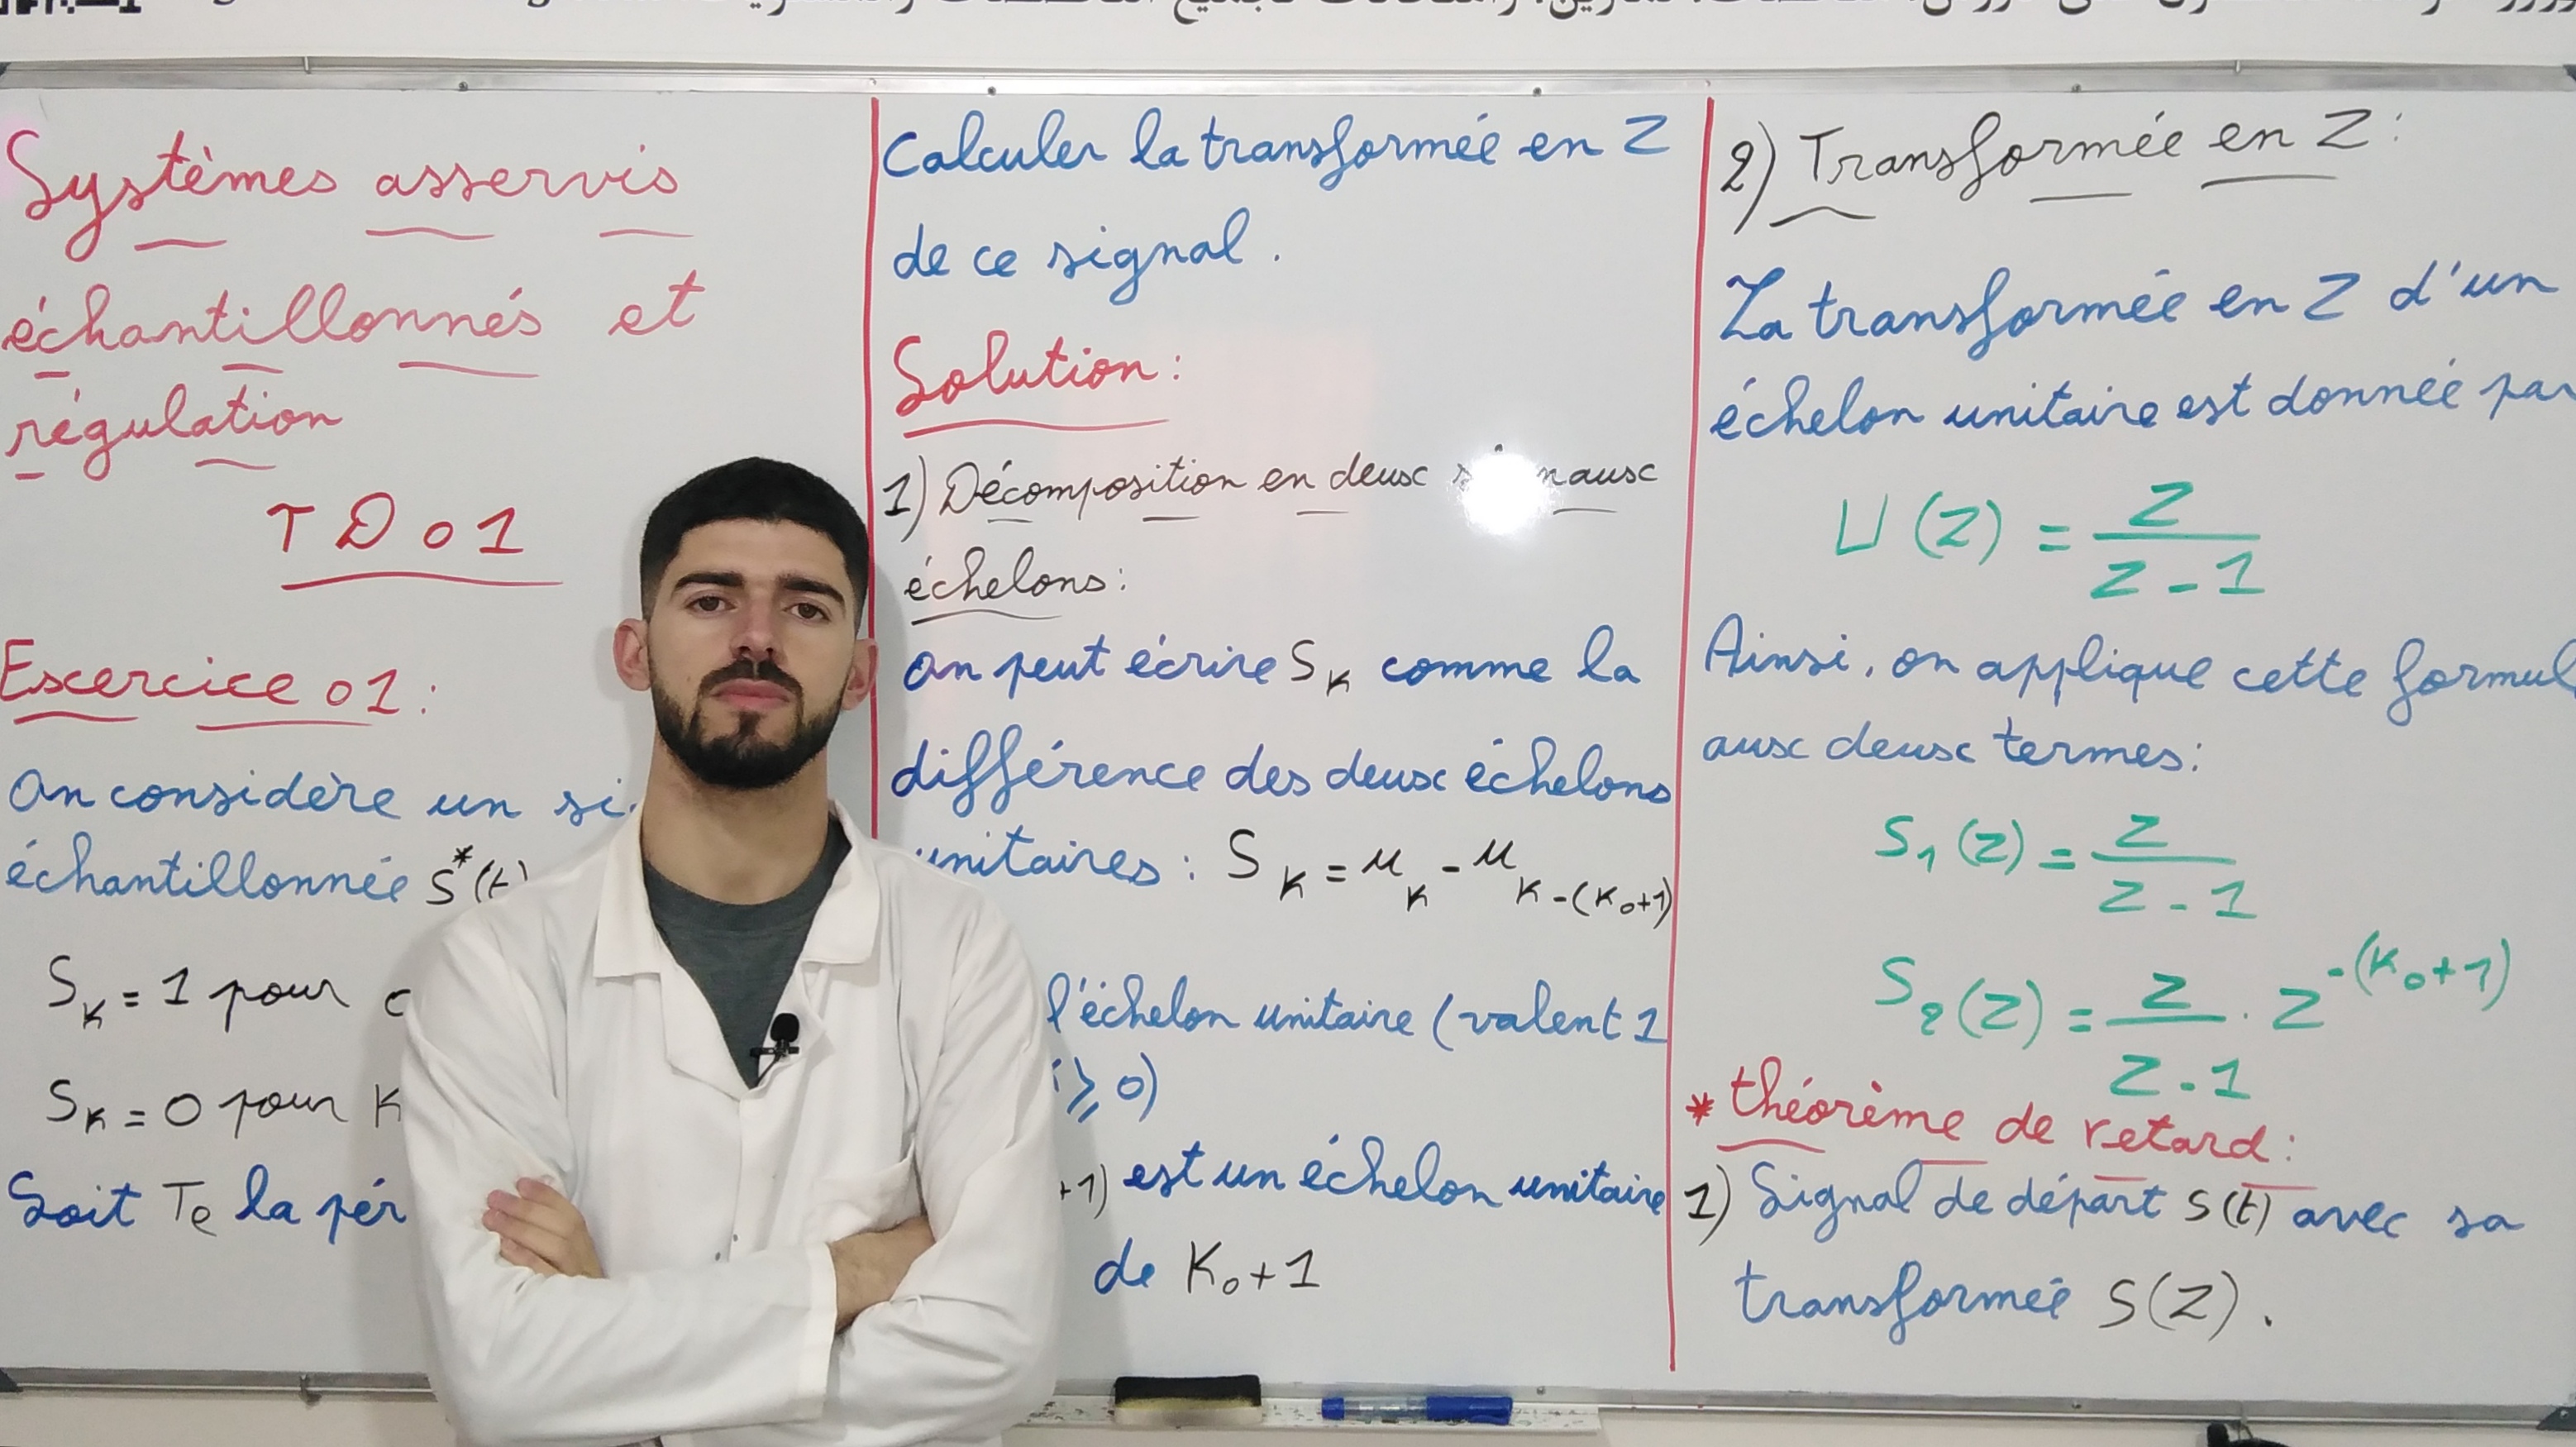 Systèmes asservis
échantillonnés et
régulation
TD 01
Excercice 01:
On considère un
échantillonnée S*(t)
S_K = 1 pour
S_K = 0 pour K
Soit Te la
Calculer la transformée en Z
de ce signal.
Solution:
1) Décomposition en deux
échelons:
on peut écrire S_K comme la
différence des deux échelons
unitaires : S_K = u_K - u_K-(K_0+1)
l'échelon unitaire (valent 1
≥ 0)
+1) est un échelon unitaire
de K_0+1
2) Transformée en Z:
La transformée en Z d'un
échelon unitaire est donnée par
U(Z) = Z / (Z - 1)
Ainsi, on applique cette formul
aux deux termes:
S_1(Z) = Z / (Z - 1)
S_2(Z) = Z / (Z - 1) . Z^-(K_0+1)
* théorème de retard:
1) Signal de départ S(t) avec sa
transformée S(Z).